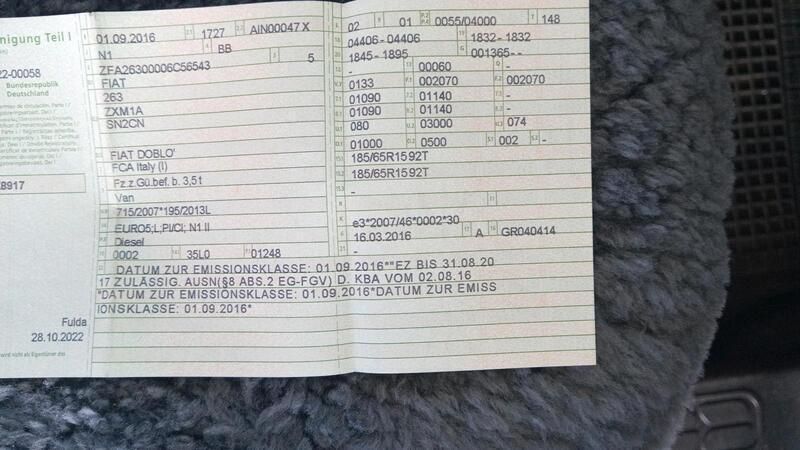 nigung Teil I
22-00058
Bundesrepublik
Deutschland
8917
Fulda
28.10.2022
wird nicht als Eigentümer das
01.09.2016 2.1 1727 2.2 AIN00047 X
N1 BB
ZFA26300006C56543 5
FIAT
263
ZXM1A
SN2CN
FIAT DOBLO'
FCA Italy (I)
Fz.z.Gü.bef. b. 3,5t
Van
715/2007*195/2013L
EURO5;L;PI/CI; N1 II
Diesel
0002 35L0 01248
02 01 0055/04000 148
04406 - 04406 1832 - 1832
1845 - 1895 001365- -
- 00060 -
0133 002070 002070
01090 01140 -
01090 01140 -
080 03000 074
01000 0500 002 -
185/65R15 92T
185/65R15 92T
-
e3*2007/46*0002*30
16.03.2016 A GR040414
-
DATUM ZUR EMISSIONSKLASSE: 01.09.2016*"EZ BIS 31.08.20
17 ZULÄSSIG. AUSN(§8 ABS.2 EG-FGV) D. KBA VOM 02.08.16
"DATUM ZUR EMISSIONSKLASSE: 01.09.2016*DATUM ZUR EMISS
IONSKLASSE: 01.09.2016*